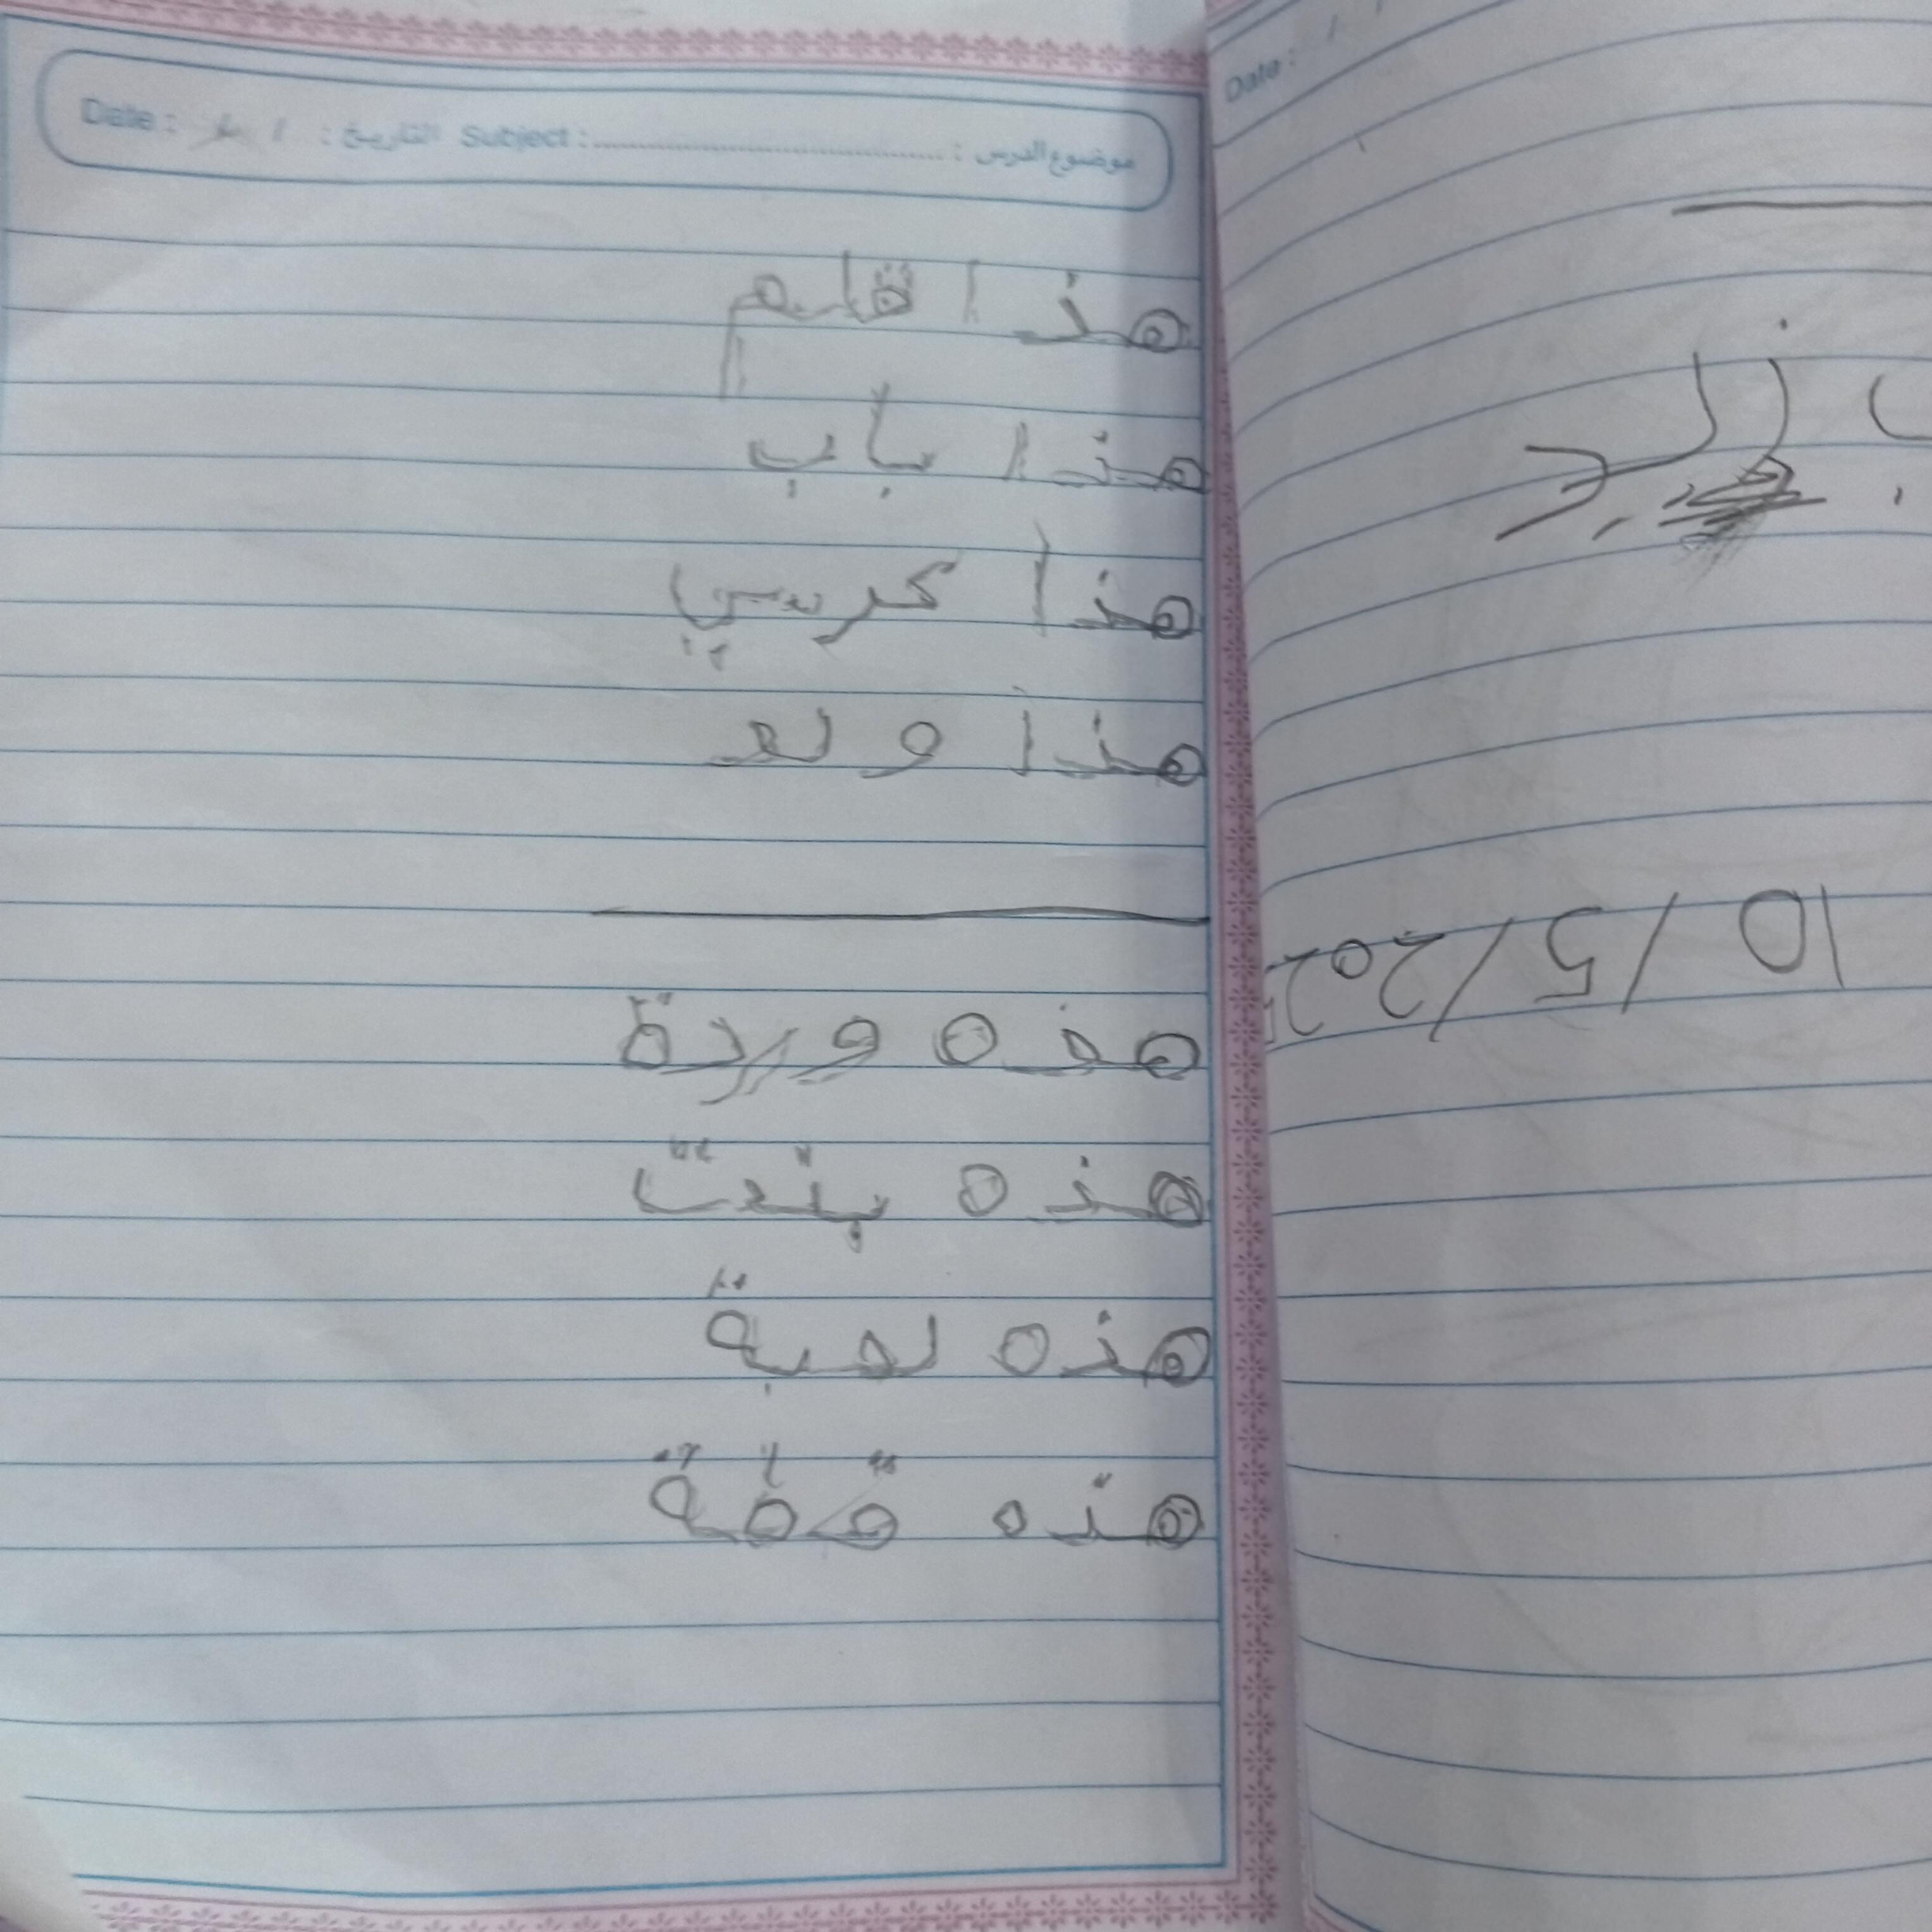 Date : / / التاريخ : Subject : موضوع الدرس :
هذا قلم
هذا باب
هذا كرسي
هذا ولد
هذه وردة
هذه
هذه لعبة
هذه
Date : / /
10/5/202